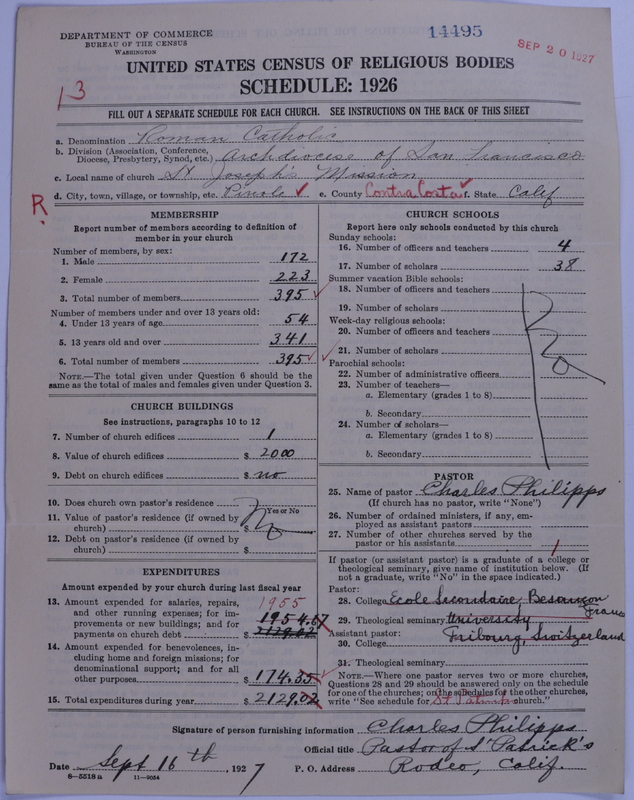 DEPARTMENT OF COMMERCE
BUREAU OF THE CENSUS
WASHINGTON
14495
SEP 20 1927
UNITED STATES CENSUS OF RELIGIOUS BODIES
SCHEDULE: 1926
13
FILL OUT A SEPARATE SCHEDULE FOR EACH CHURCH. SEE INSTRUCTIONS ON THE BACK OF THIS SHEET
a. Denomination Roman Catholic
b. Division (Association, Conference, Diocese, Presbytery, Synod, etc.) Archdiocese of San Francisco
c. Local name of church St Joseph's Mission
d. City, town, village, or township, etc. Pinole e. County Contra Costa f. State Calif
R
MEMBERSHIP
Report number of members according to definition of
member in your church
Number of members, by sex:
1. Male 172
2. Female 223
3. Total number of members 395
Number of members under and over 13 years old:
4. Under 13 years of age 54
5. 13 years old and over 341
6. Total number of members 395
NOTE.—The total given under Question 6 should be
same as the total of males and females given under Question 3.
CHURCH BUILDINGS
See instructions, paragraphs 10 to 12
7. Number of church edifices 1
8. Value of church edifices $ 2000
9. Debt on church edifices $ no
10. Does church own pastor's residence No
Yes or No
11. Value of pastor's residence (if owned by
church) $
12. Debt on pastor's residence (if owned by
church) $
EXPENDITURES
Amount expended by your church during last fiscal year
13. Amount expended for salaries, repairs, 1955
and other running expenses; for im-
provements or new buildings; and for 1954.67
payments on church debt $ 2129.02
14. Amount expended for benevolences, in-
cluding home and foreign missions; for
denominational support; and for all
other purposes $ 174.35
15. Total expenditures during year $ 2129.02
CHURCH SCHOOLS
Report here only schools conducted by this church
Sunday schools:
16. Number of officers and teachers 4
17. Number of scholars 38
Summer vacation Bible schools:
18. Number of officers and teachers
19. Number of scholars
Week-day religious schools:
20. Number of officers and teachers
21. Number of scholars
No
Parochial schools:
22. Number of administrative officers
23. Number of teachers—
a. Elementary (grades 1 to 8)
b. Secondary
24. Number of scholars—
a. Elementary (grades 1 to 8)
b. Secondary
PASTOR
25. Name of pastor Charles Philipps
(If church has no pastor, write "None")
26. Number of ordained ministers, if any, em-
ployed as assistant pastors
27. Number of other churches served by the
pastor or his assistants 1
If pastor (or assistant pastor) is a graduate of a college or
theological seminary, give name of institution below. (If
not a graduate, write "No" in the space indicated.)
Pastor:
28. College Ecole Secondaire, Besancon
France
29. Theological seminary University
Assistant pastor: Fribourg, Switzerland
30. College
31. Theological seminary
NOTE.—Where one pastor serves two or more churches,
Questions 28 and 29 should be answered only on the schedule
for one of the churches; on the schedules for the other churches,
write "See schedule for St Patricks church."
Signature of person furnishing information Charles Philipps
Official title Pastor of St Patrick's
Date Sept 16th, 1927 P. O. Address Rodeo, Calif.
8—5518a 11—9054